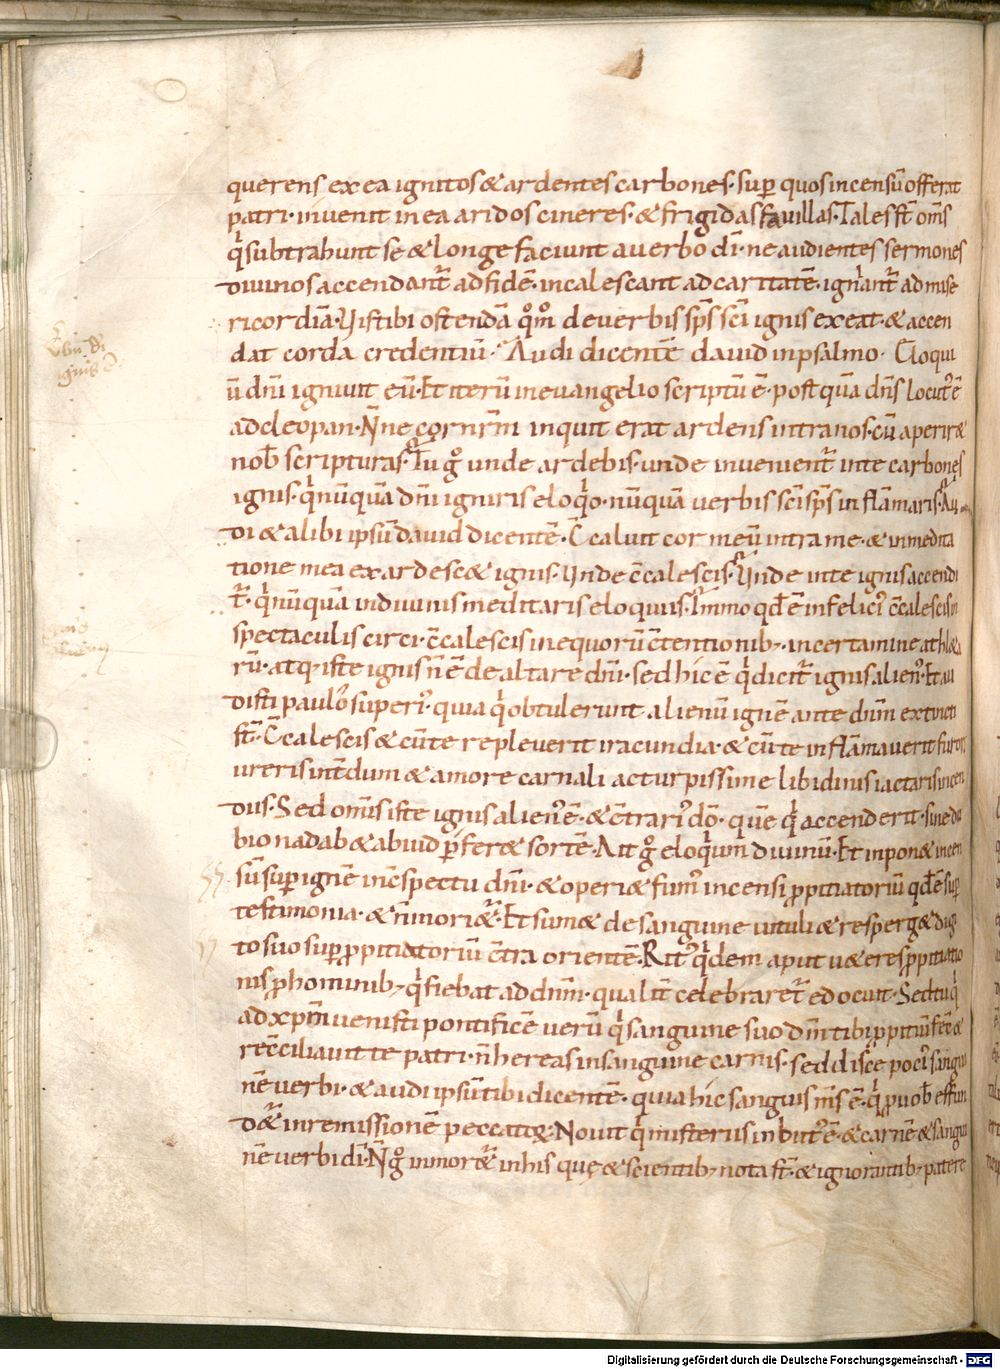 querens ex ea ignitos & ardentes carbones. sup̄ quos incensū offerat
patri. invenit in ea aridos cineres. & frigidas favillas. Tales st̄ om̄s
q̇ subtrahunt se & longe faciunt a verbo dī. ne audientes sermones
divinos accendant̄ ad fidē. incalescant ad caritatē. ignāt̄ ad mise
ricordiā. Vis tibi ostendā qm̊o de verbis sp̄s sc̄i ignis exeat. & accen
dat corda credentiū. Audi dicentē david in psalmo. Eloqui
ū dn̄i ignivit eū. Et iterū in evangelio scriptū ē. post quā dn̄s locut᷒ ē
ad cleopan. N̄ne cor nr̄m inquit erat ardens intra nos. cū aperir&
nob̄ scripturas. Tu g̊ unde ardebis. unde invenient̄ in te carbones
ignis. q̇ nūquā dn̄i igniris eloq̇o. nūquā verbis sc̄i sp̄s inflāmaris. Au
di & alibi ipsū david dicentē. C̄caluit cor meū intra me. & in medita
tione mea exardesc& ignis. Unde c̄calescis. Unde in te ignis accendi
t̄. q̇ nūquā in divinis meditaris eloquiis. Immo qd̄ ē infelici᷒ c̄calescis in
spectaculis circi. c̄calescis in equorū c̄tentionib; in certamine athl&a
rū. atq; iste ignis n̄ ē de altare dn̄i. sed hic ē q̇ dicit̄ ignis alien᷒. Et au
disti paulo superi᷒. quia q̇ obtulerunt alienū ignē ante dn̄m extincti
st̄. C̄calescis & cū te repleverit iracundia. & cū te inflāmaverit furor.
ureris int̄dum & amore carnali ac turpissime libidinis iactaris incen
diis. Sed om̄s iste ignis alien᷒ ē. & c̄trari᷒ dō. quē q̇ accenderit. sine du
bio nadab & abiud p̄fer& sortē. Ait g̊ eloq̇um divinū. Et inpon& incen
sū sup̄ ignē in c̄spectu dn̄i. & operi& fum᷒ incensi p̱pitiatoriū qd̄ ē sup̄
testimonia. & n̄ mori&̄. Et sum& de sanguine vituli & resperg& digi
to suo sup̄ p̱pitiatoriū c̄tra orientē. Rit᷒ q̇dem aput v&eres p̱pitiatio
nis p̱ hominib; q̇ fiebat ad dn̄m. qualit̄ celebraret̄ edocuit. Sed tu q̇
ad xp̄m venisti pontificē verū q̇ sanguine suo dm̄ tibi p̱pitiū fecit &
rec̄ciliavit te patri. n̄ hereas in sanguine carnis. sed disce poci᷒ sangui
nē verbi. & audi ipsū tibi dicentē. quia hic sanguis m̄s ē. q̇ p̱ vob̄ effun
d&̄ in remissionē peccatoꝝ. Novit q̇ misteriis inbut᷒ ē. & carnē & sangui
nē verbi dī. N̄ g̊ inmor&̄ in his quę & scientib; nota st̄. & ignorantib; patere